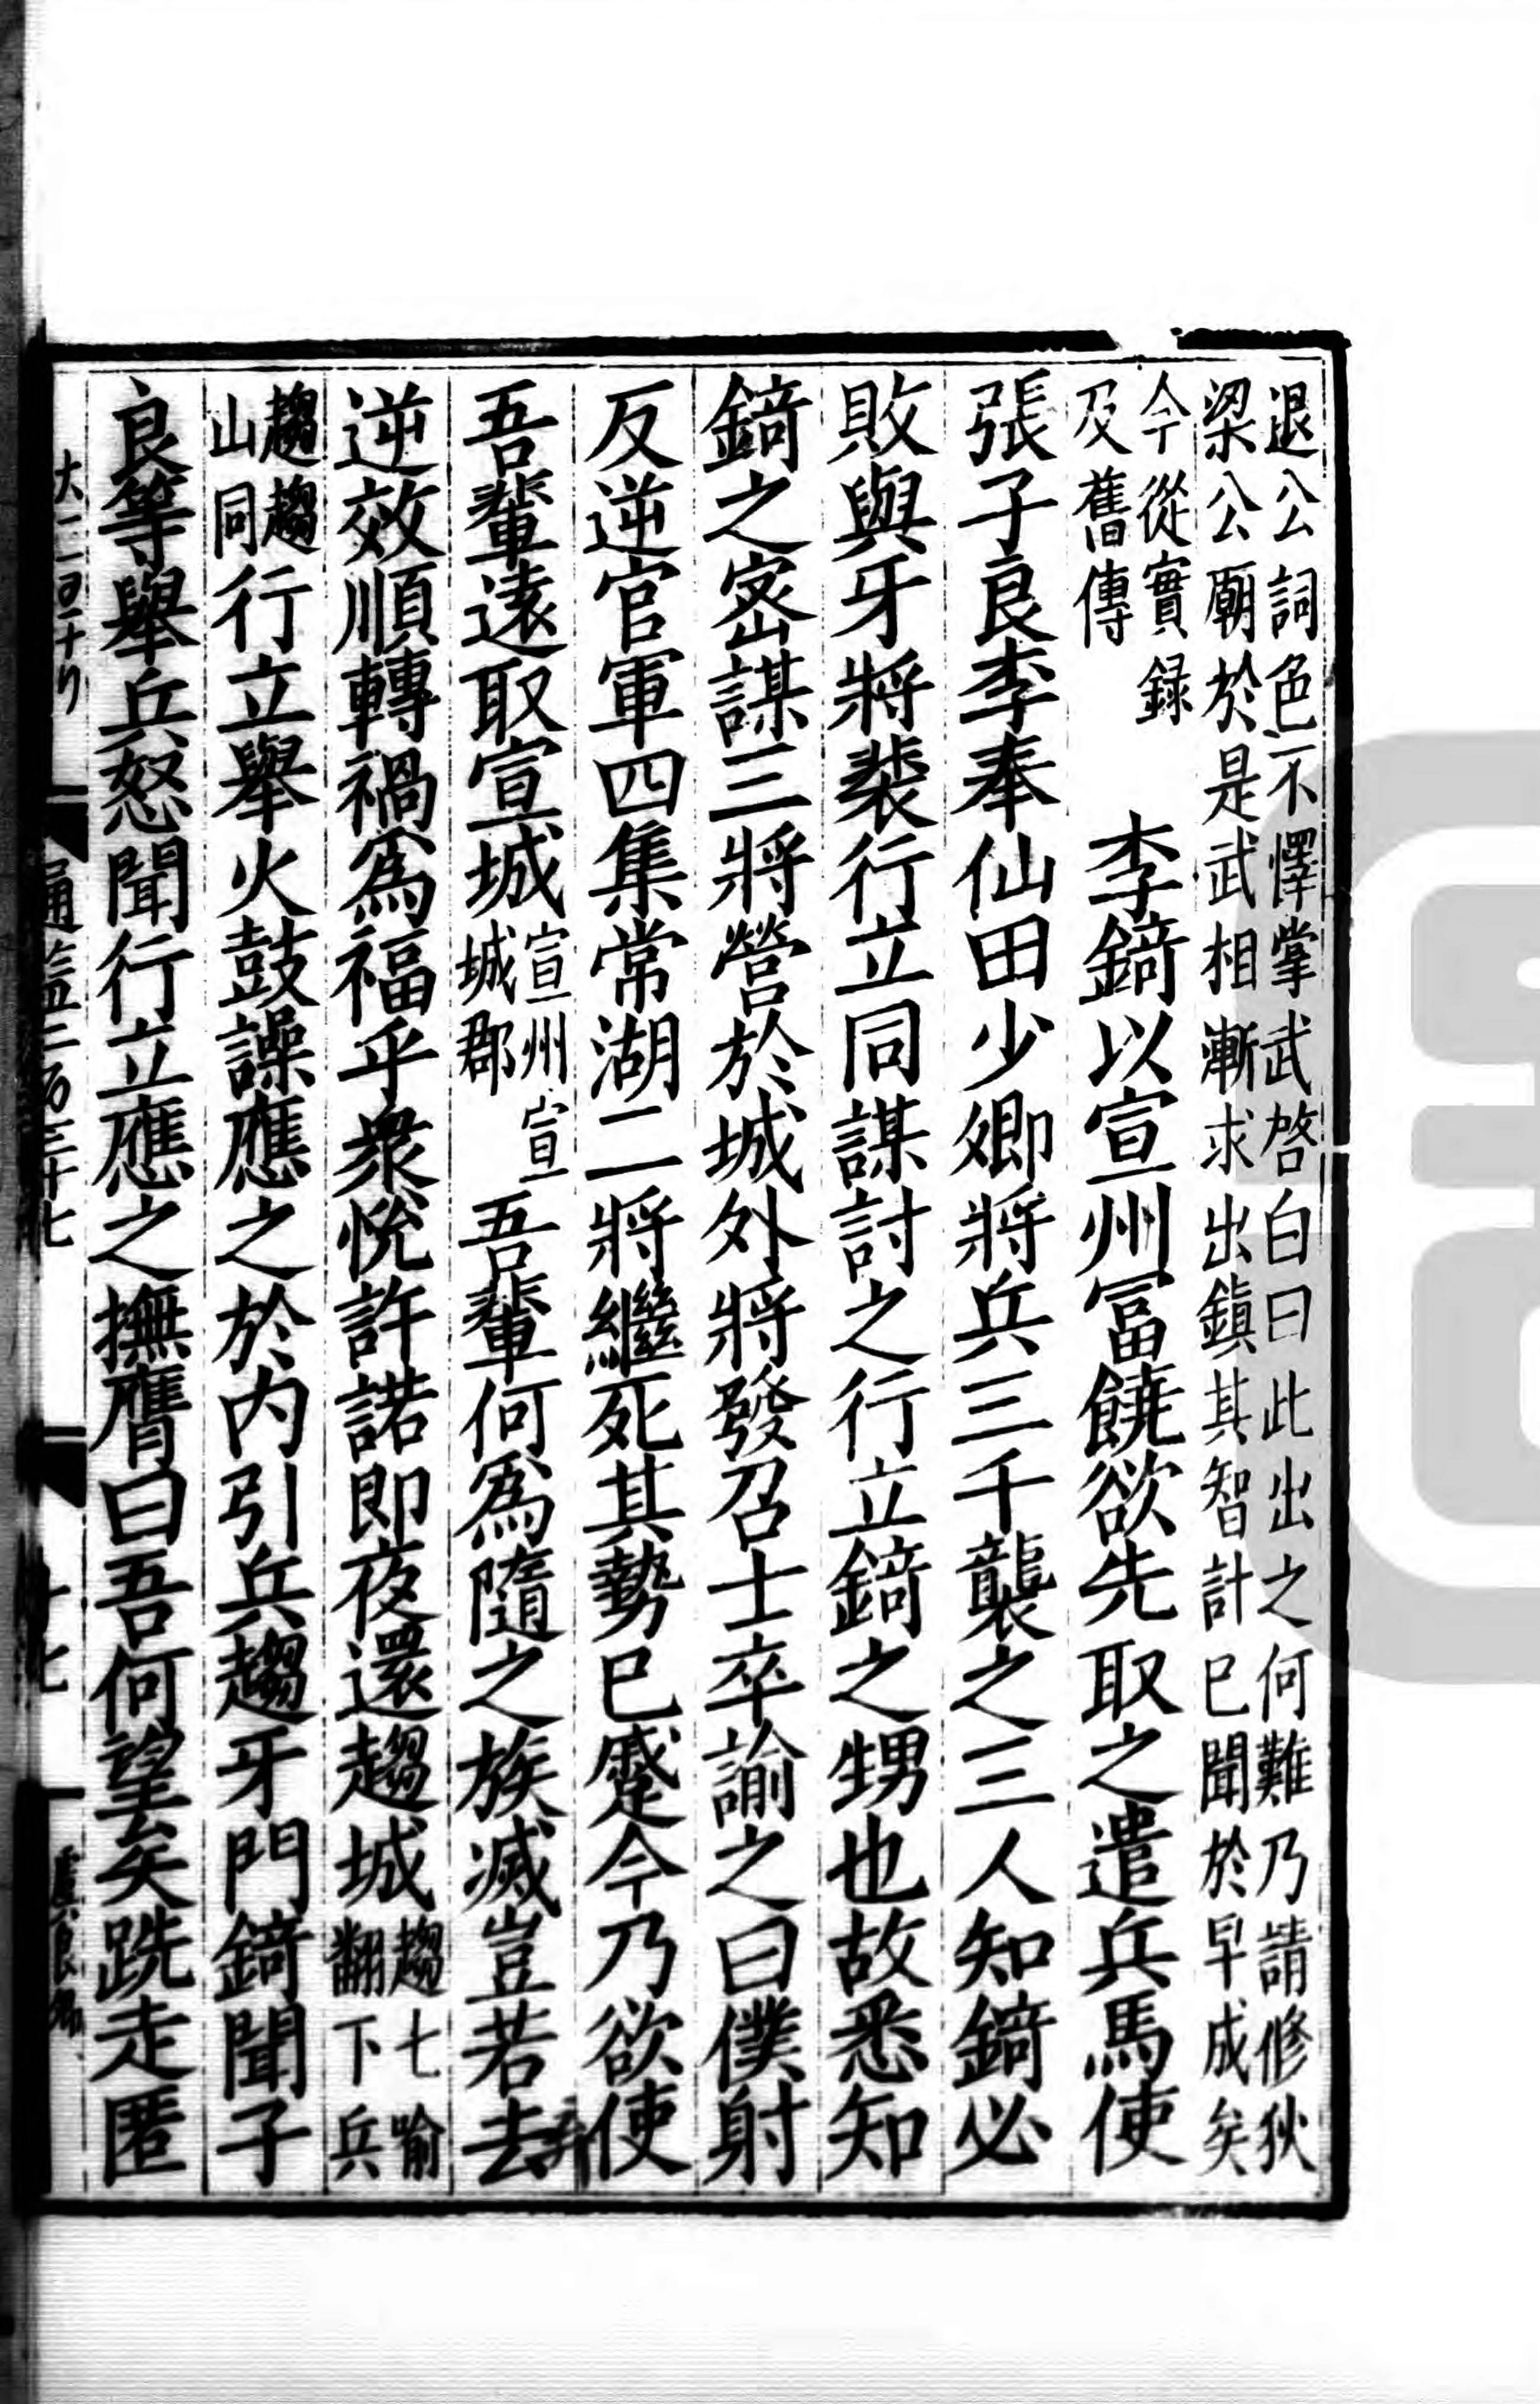 退公詞色不懌掌武啓白曰此出之何難乃請修狄
梁公廟於是武相漸求出鎮其智計已聞於早成矣
今從實錄
及舊傳
李錡以宣州冨饒欲先取之遣兵馬使
張子良李奉仙田少卿將兵三千襲之三人知錡必
敗與牙將裴行立同謀討之行立錡之甥也故悉知
錡之密謀三將營於城外將發召士卒諭之曰僕射
反逆官軍四集常湖二將繼死其勢已蹙今乃欲使
吾輩遠取宣城
宣州宣
城郡
吾輩何爲隨之族滅豈若去
逆效順轉禍爲福乎衆悅許諾即夜還趨城
趨七喻
翻下兵
趨趨
山同
行立舉火鼓譟應之於内引兵趨牙門錡聞子
良等舉兵怒聞行立應之撫膺曰吾何望矣跣走匿
通鑑二百三十七